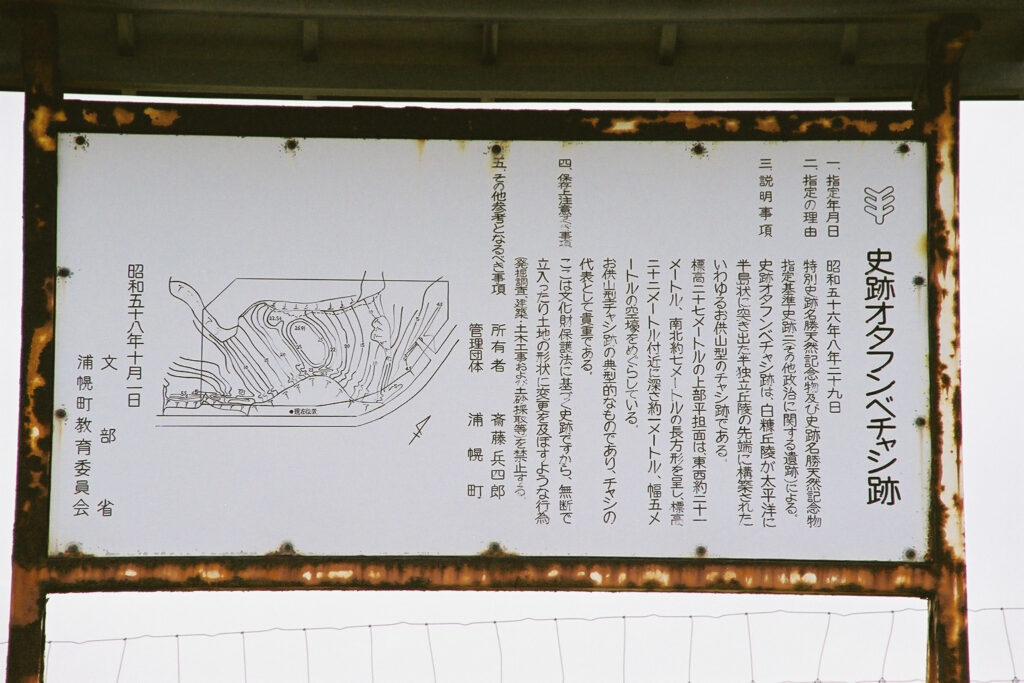 史跡オタフンベチャシ跡
一、指定年月日 昭和五十六年八年二十九日
二、指定の理由 特別史跡名勝天然記念物及び史跡名勝天然記念物
指定基準史跡二(その他政治に関する遺跡)による。
三、説明事項 史跡オタフンベチャシ跡は、白糠丘陵が太平洋に
半島状に突き出た半独立丘陵の先端に構築された
いわゆるお供山型のチャシ跡である。
標高二十七メートルの上部平担面は、東西約二十一
メートル、南北約七メートルの長方形を呈し、標高
二十二メートル付近に深さ約一メートル、幅五メ
ートルの空壕をめぐらしている。
お供山型チャシ跡の典型的なものであり、チャシの
代表として貴重である。
四、保存上注意すべき事項 ここは文化財保護法に基づく史跡ですから、無断で
立入ったり、土地の形状に変更を及ぼすような行為
(発掘調査、建築・土木工事および土砂採取等)を禁止する。
五、その他参考となるべき事項 所有者 斎藤兵四郎
管理団体 浦幌町
現在位置
昭和五十八年十月一日
文部省
浦幌町教育委員会